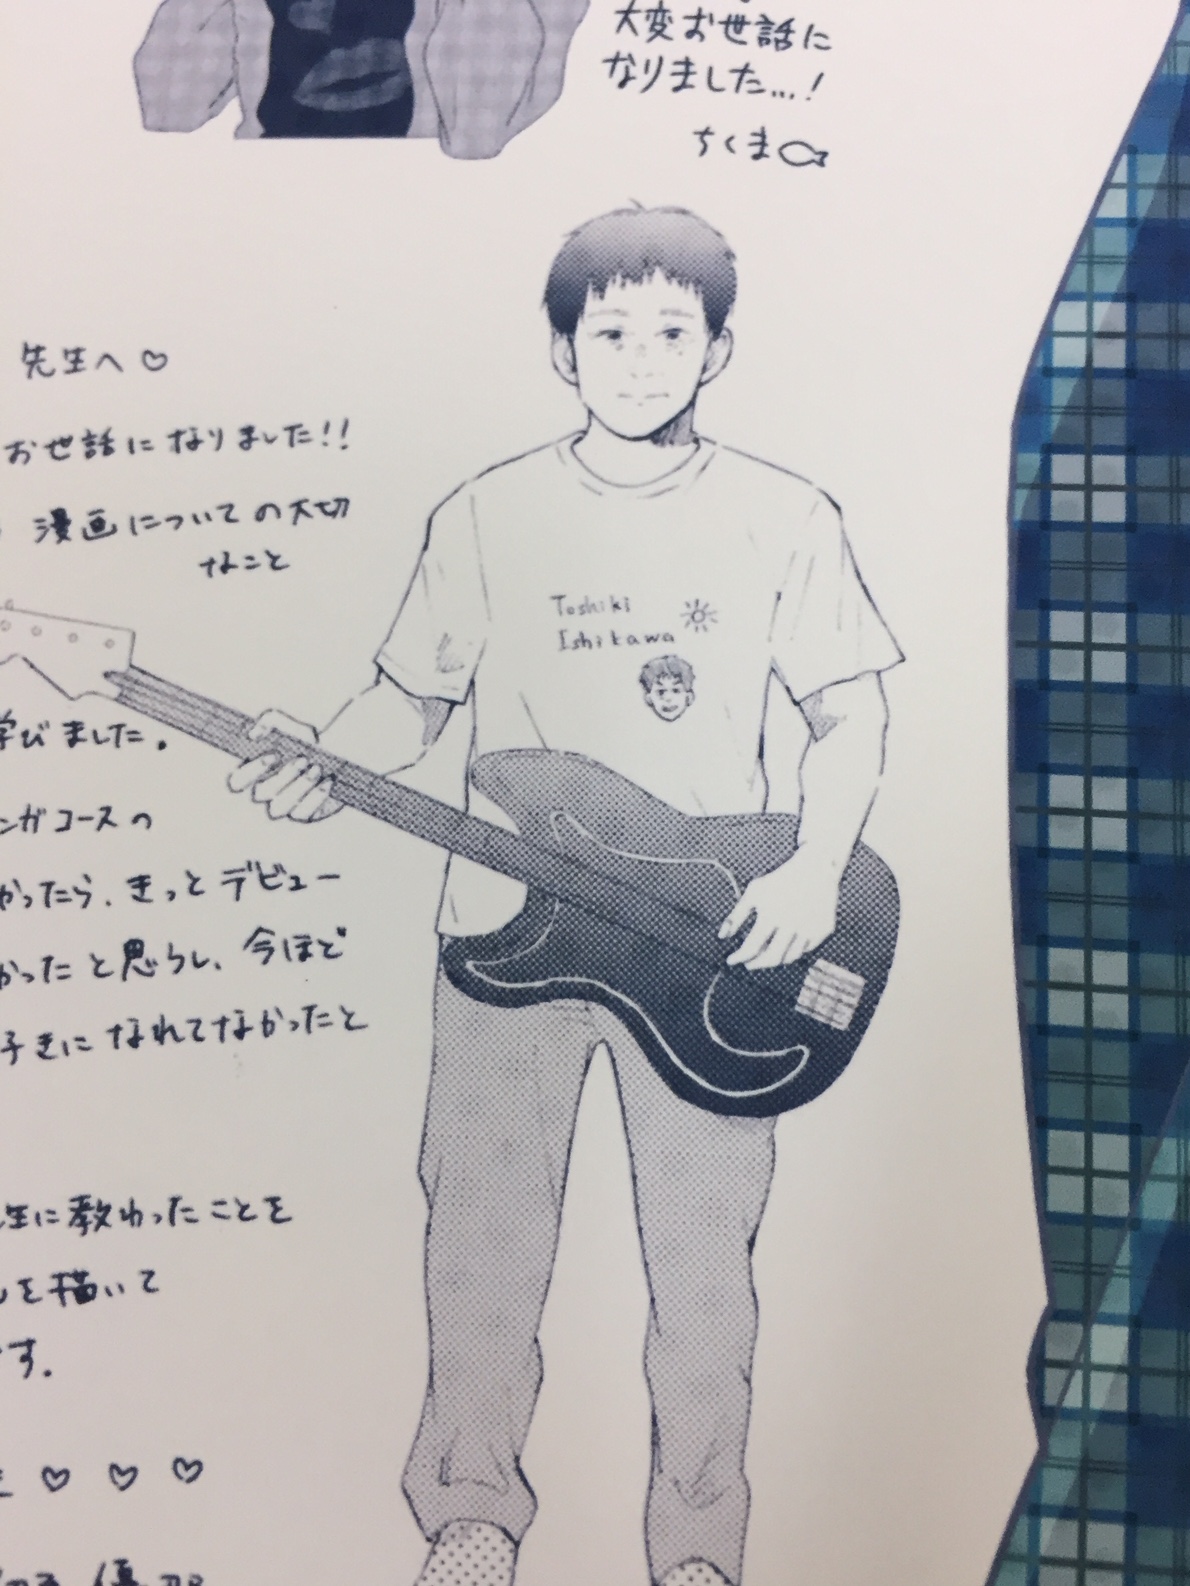 大変お世話に
なりました...!
ちくま
先生へ♡
お世話になりました!!
漫画についての大切
なこと
Toshiki
Ishikawa
学びました。
ンガコースの
かったら、きっとデビュー
かったと思うし、今ほど
きになれてなかったと
生に教わったことを
を描いて
す。
♡ ♡ ♡